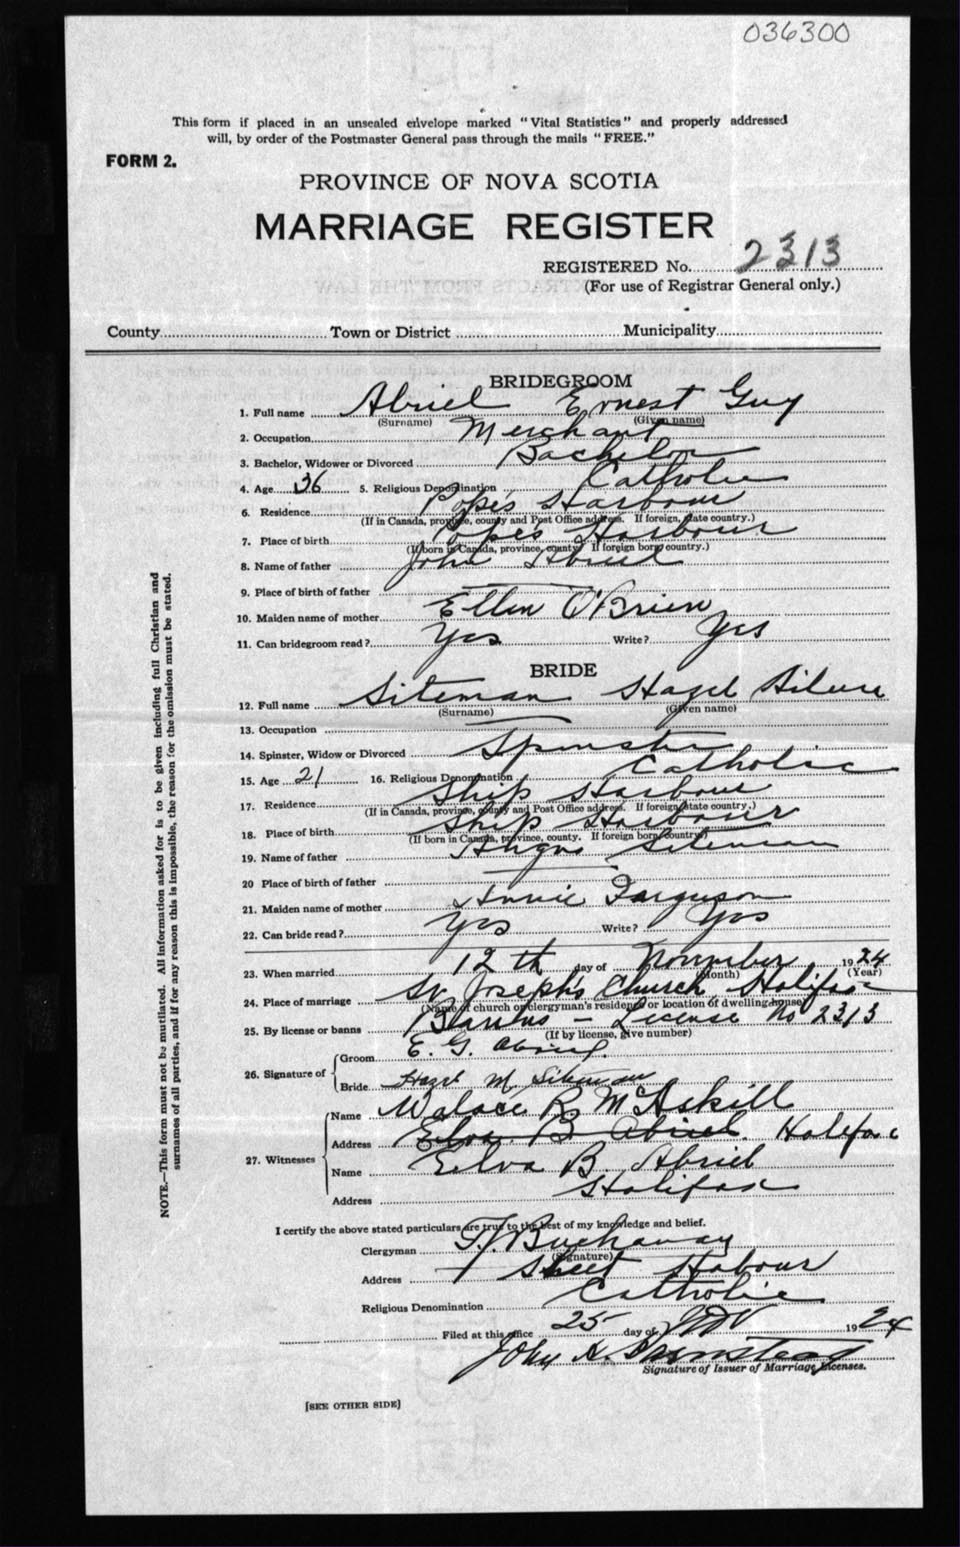 036300
This form if placed in an unsealed envelope marked "Vital Statistics" and properly addressed
will, by order of the Postmaster General pass through the mails "FREE."
FORM 2.
PROVINCE OF NOVA SCOTIA
MARRIAGE REGISTER
REGISTERED No. 2313
(For use of Registrar General only.)
County Town or District Municipality
BRIDEGROOM
1. Full name Abriel Ernest Guy
(Surname) (Given name)
2. Occupation Merchant
3. Bachelor, Widower or Divorced Bachelor
4. Age 36 5. Religious Denomination Catholic
6. Residence Popes Harbour
(If in Canada, province, county and Post Office address. If foreign, state country.)
7. Place of birth Popes Harbour
(If born in Canada, province, county If foreign born country.)
8. Name of father John Abriel
9. Place of birth of father
10. Maiden name of mother Ellen O'Brien
11. Can bridegroom read? Yes Write? Yes
BRIDE
12. Full name Siteman Hazel
(Surname) (Given name)
13. Occupation
14. Spinster, Widow or Divorced Spinster
15. Age 21 16. Religious Denomination Catholic
17. Residence Ship Harbour
(If in Canada, province, county and Post Office address. If foreign, state country.)
18. Place of birth Ship Harbour
(If born in Canada, province, county. If foreign born country)
19. Name of father Angus Siteman
20 Place of birth of father
21. Maiden name of mother Annie Ferguson
22. Can bride read? Yes Write? Yes
23. When married 12th day of November 1924
(Month) (Year)
24. Place of marriage St. Joseph's Church Halifax
(Name of church or clergyman's residence or location of dwelling house)
25. By license or banns Banns - License No 2313
(If by license, give number)
26. Signature of Groom E. G. Abriel
Bride Hazel M. Siteman
27. Witnesses Name Walace R McAskill
Address Elva B Abriel. Halifax
Name Elva B. Abriel
Halifax
Address
I certify the above stated particulars are true to the best of my knowledge and belief.
Clergyman
(Signature)
Address Sheet Habour
Religious Denomination Catholic
Filed at this office 25 day of Nov 1924
John A.
Signature of Issuer of Marriage Licenses.
[SEE OTHER SIDE]
NOTE.—This form must not be mutilated. All information asked for is to be given including full Christian and
surnames of all parties, and if for any reason this is impossible, the reason for the omission must be stated.